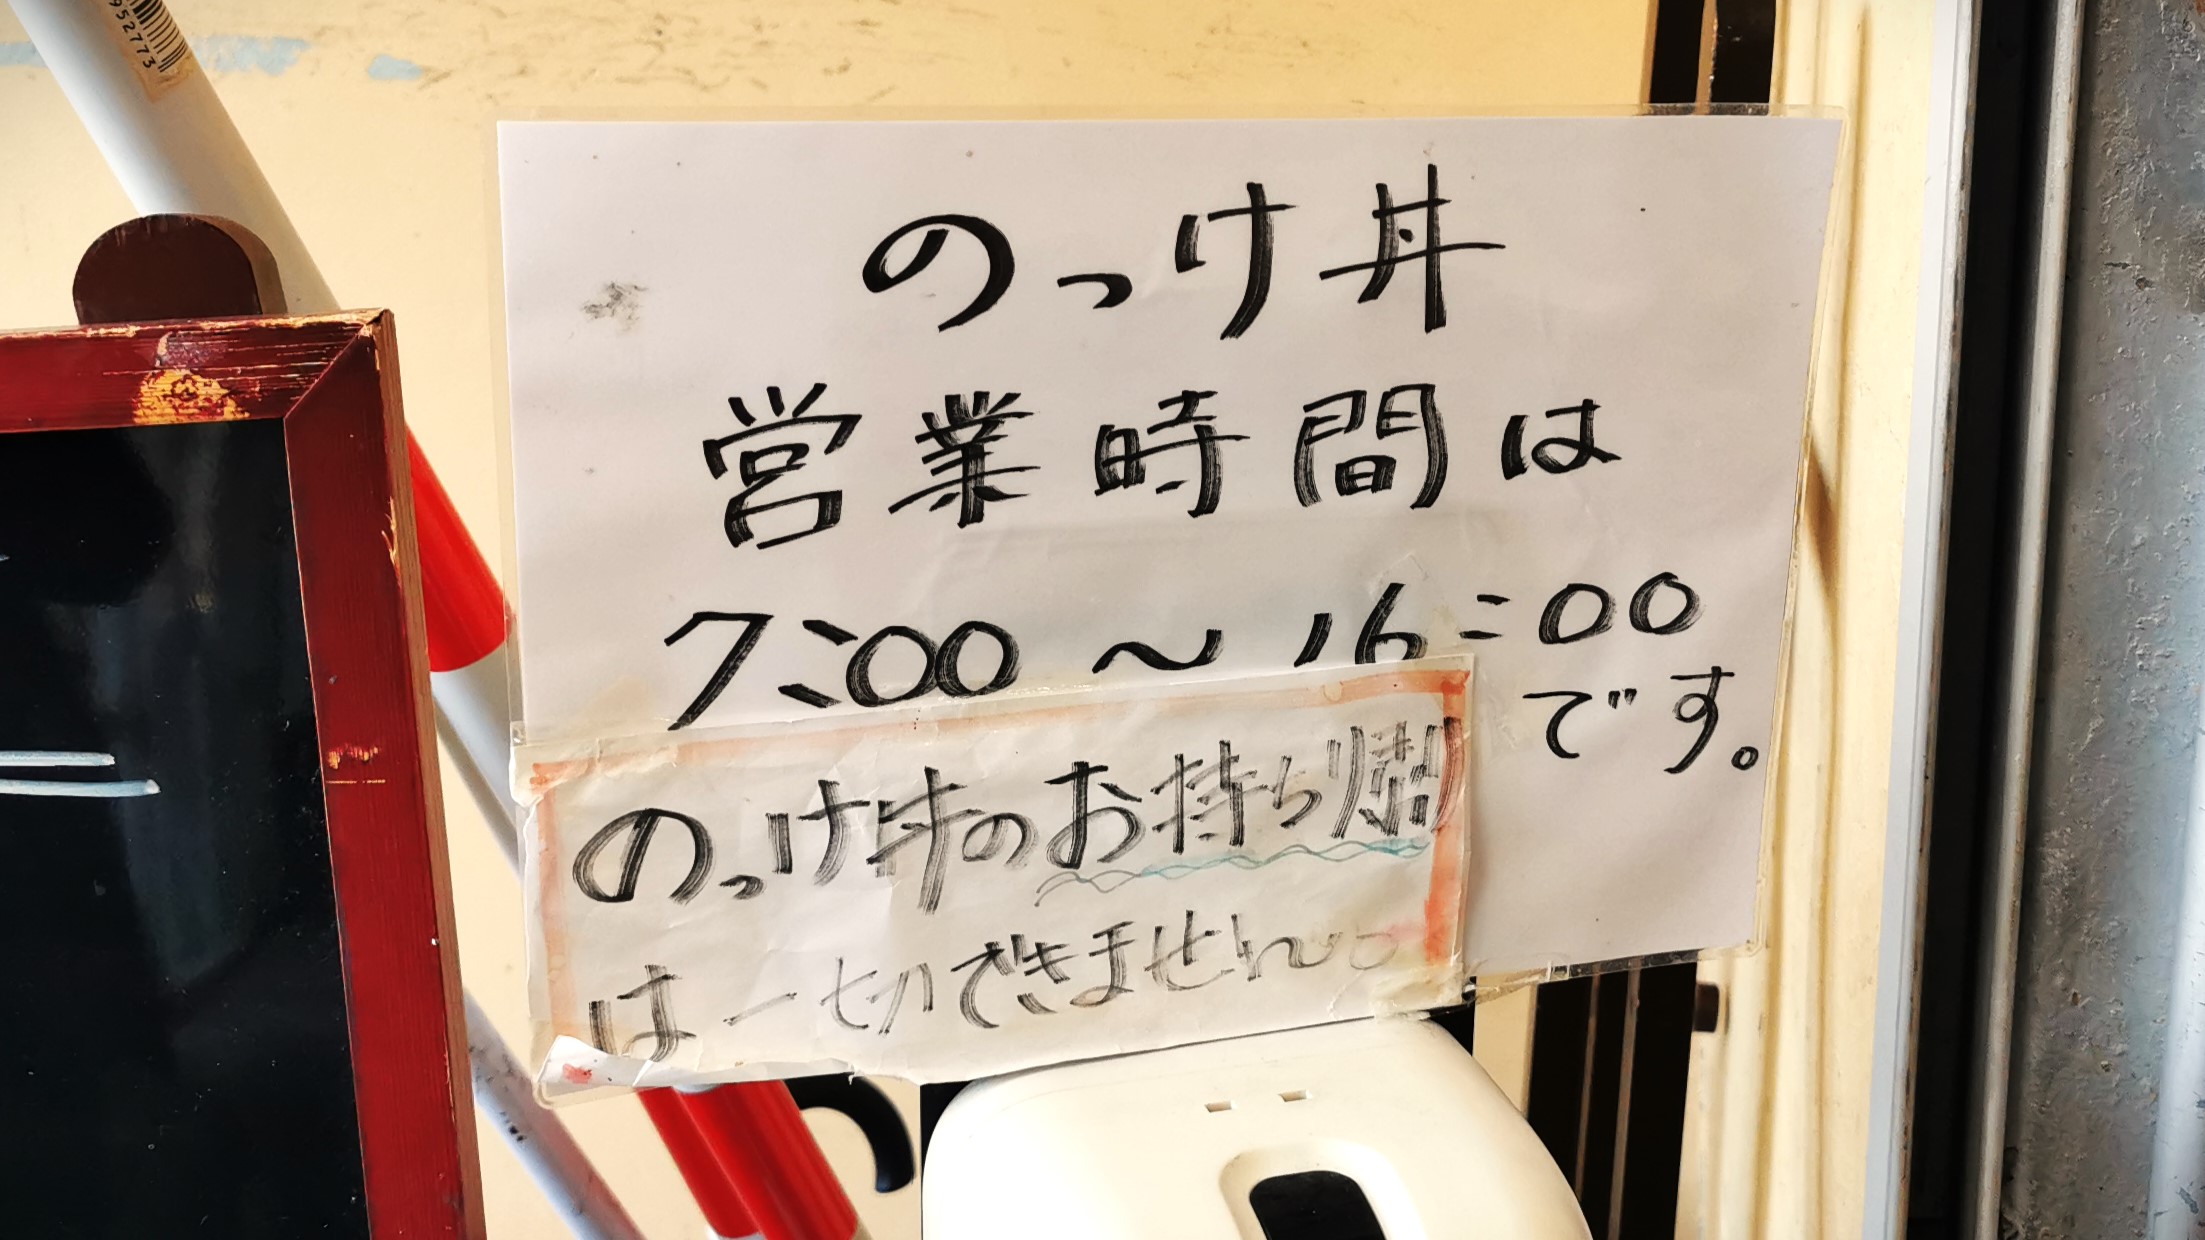 952773
のっけ丼
営業時間は
7:00〜16:00
です。
のっけ丼のお持ち帰り
は一切できません。